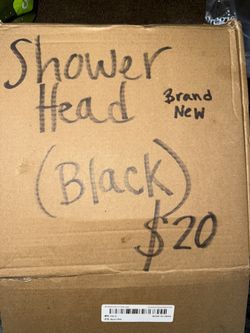 Shower
Head
Brand
New
(Black)
$20